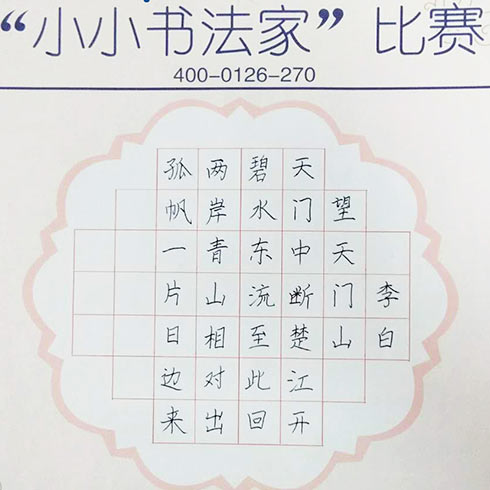 “小小书法家”比赛
400-0126-270
李白
望天门山
天门中断楚江开
碧水东流至此回
两岸青山相对出
孤帆一片日边来